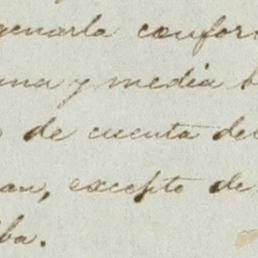 genarla confor
una y media b
de cuenta del
an, excepto de
ba.